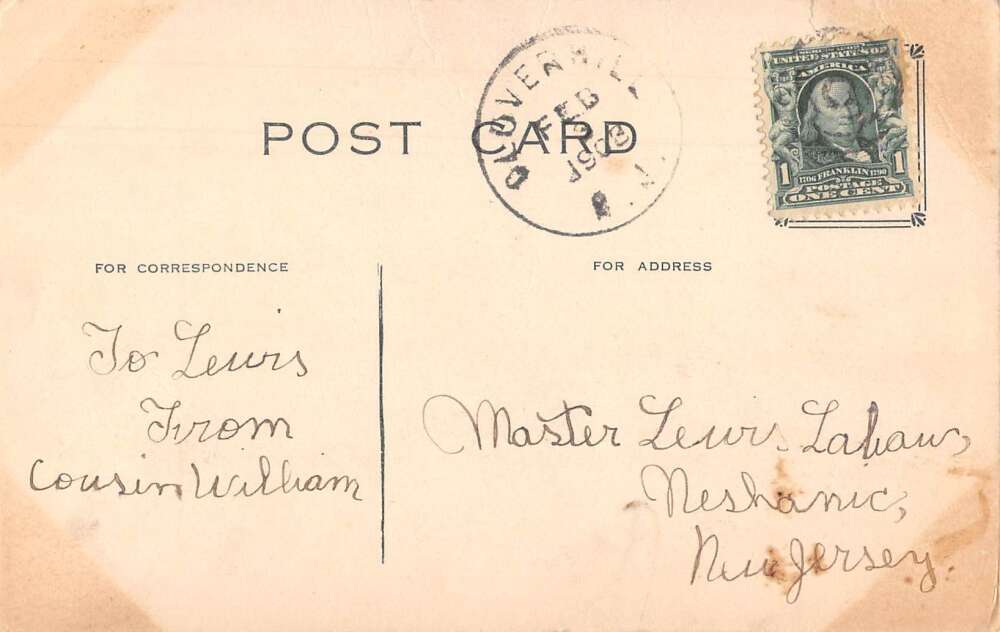 POST CARD
CLOVERHILL
FEB
1908
N.J.
SERIES 1902
UNITED STATES OF
AMERICA
1 1706 FRANKLIN 1790 1
POSTAGE
ONE CENT
FOR CORRESPONDENCE
FOR ADDRESS
To Lewis
From
Cousin William
Master Lewis Lahaw,
Neshanic,
New Jersey.